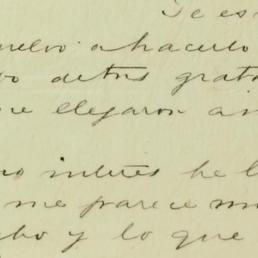 Te es
vuelvo a hacerlo
de tus grat
que llegaron a m
no interes he l
me parece mu
cho y lo que